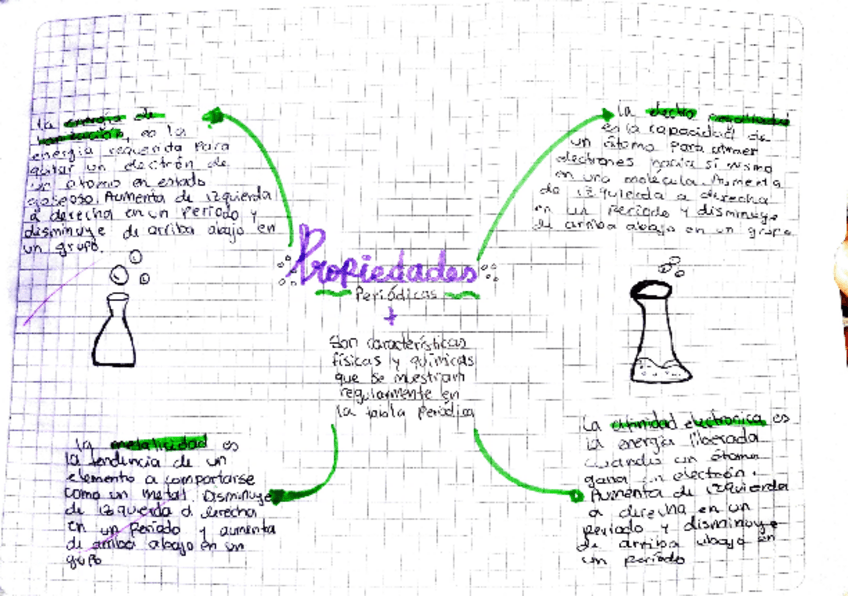 Propiedades
Periódicas
Son características
físicas y químicas
que se muestran
regularmente en
la tabla periódica
La energía de
ionización, es la
energía requerida para
quitar un electrón de
un átomo en estado
gaseoso. Aumenta de izquierda
a derecha en un periodo y
disminuye de arriba abajo en
un grupo.
La electro
es la capacidad de
un átomo para atraer
electrones hacia sí mismo
en una molécula. Aumenta
de izquierda a derecha
en un periodo y disminuye
de arriba abajo en un grupo
La metalicidad es
la tendencia de un
elemento a comportarse
como un metal. Disminuye
de izquierda a derecha
en un periodo y aumenta
de arriba abajo en un
grupo
La afinidad electronica es
la energía liberada
cuando un átomo
gana un electrón.
Aumenta de izquierda
a derecha en un
periodo y disminuye
de arriba abajo en
un periodo